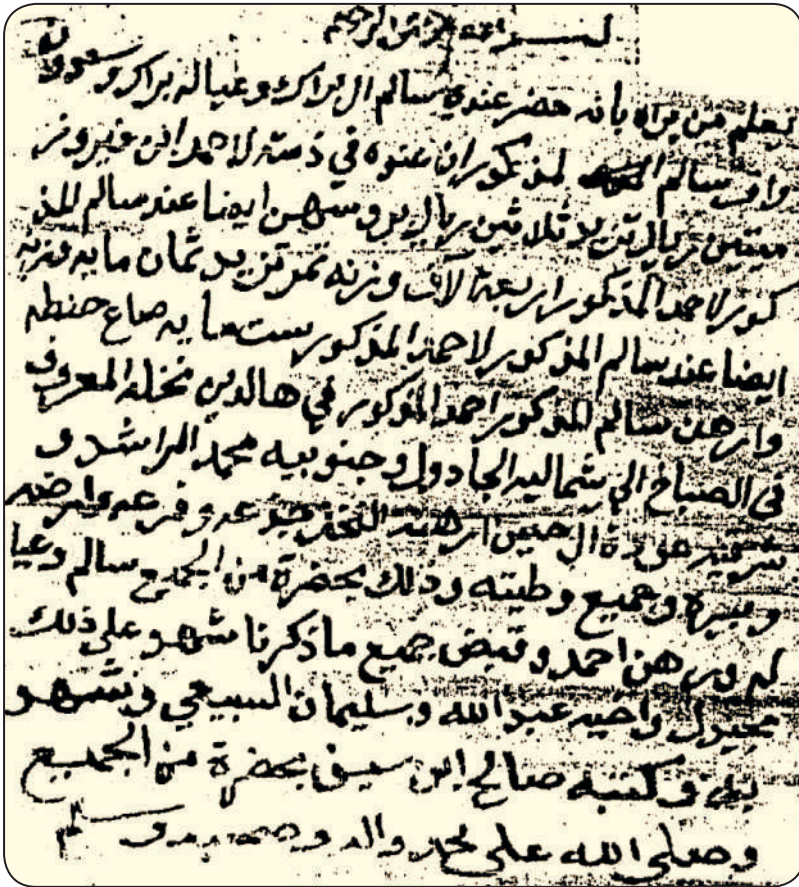 بسم الله الرحمن الرحيم
يعلم من يراه بانه حضر عندي سالم ال براك وعياله براك وسعود
واقر سالم المذكور ان عنده في ذمته لاحمد ابن فيروز
ميتين ريال تزيد ثلاثين ريال وشهن ايضا عند سالم المذ
كور لاحمد المذكور اربعة الاف وزنه تمر تزيد ثمان مايه وزنه
ايضا عند سالم المذكور لاحمد المذكور ست مايه صاع حنطه
وارهن سالم المذكور احمد المذكور في هالدين نخله المعروف
في الصباخ الي شماليه الجادول وجنوبيه محمد الراشد و
هودة ال حنين ارهنه النخل جذوعه وفرعه وارضه
وبيره وجميع وطيته وذلك بحضرة من الجميع سالم وعيا
له ورهن احمد وقبض جميع ما ذكرنا شهد على ذلك
واخيه عبدالله وسليمان السبيعي وشهد
به وكتبه صالح ابن سيف بحضرة من الجميع
وصلى الله على محمد واله وصحبه وسلم